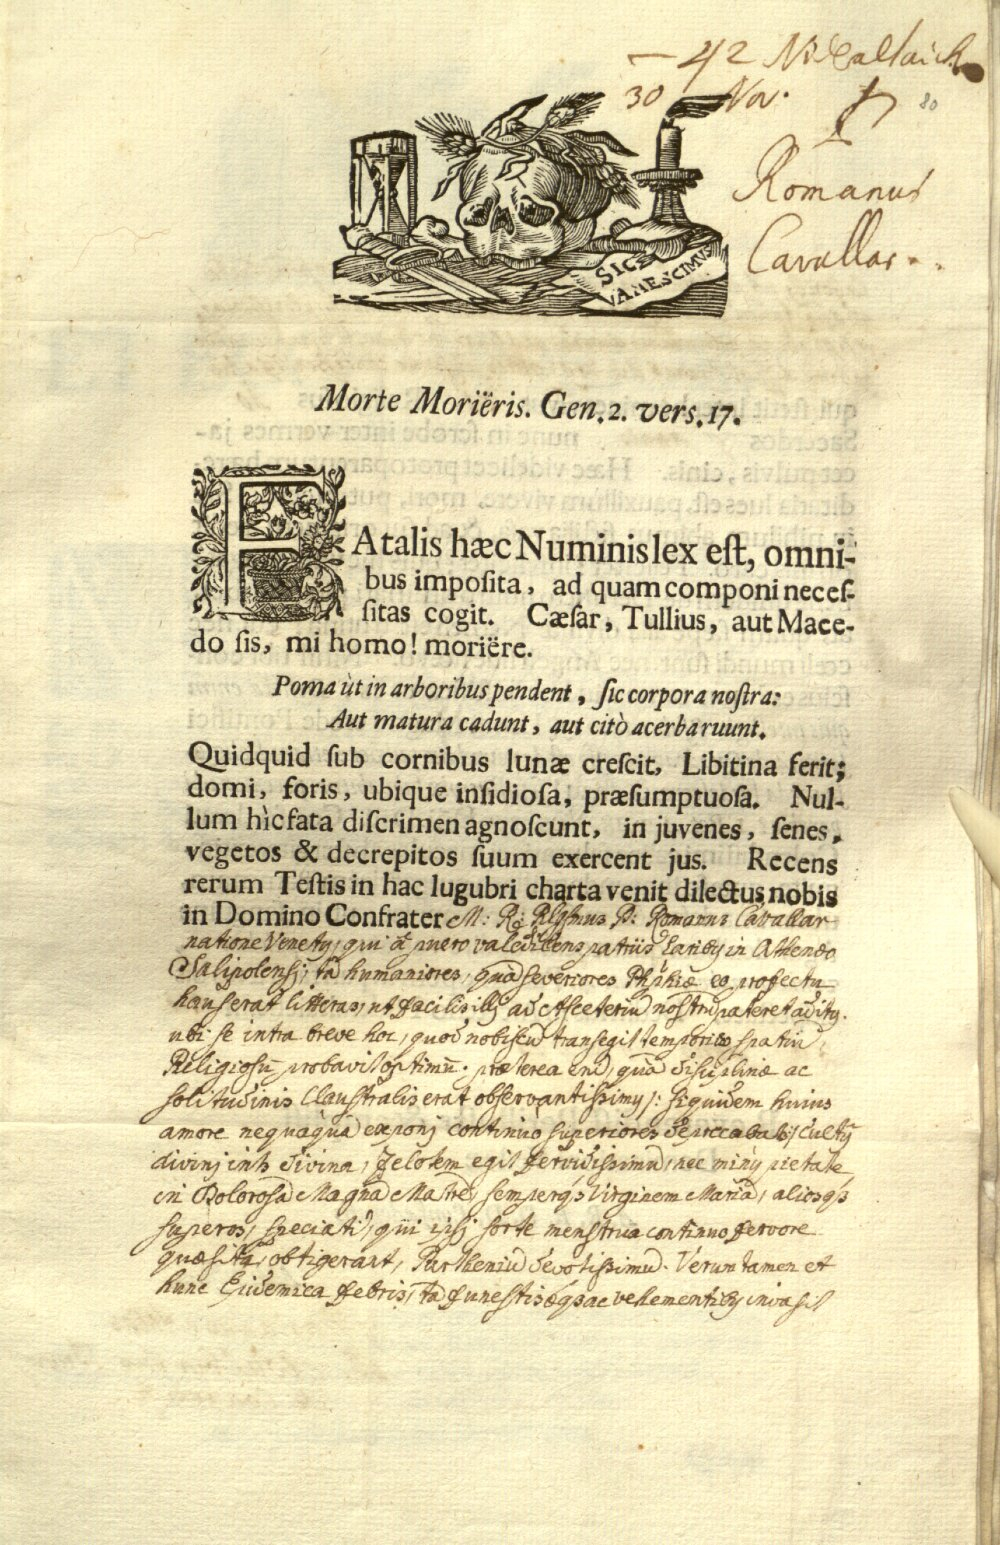 — 42 N
30 Nov. 80
Romanus
Cavallar..
SIC
VANESCIMUS
Morte Moriëris. Gen. 2. vers. 17.
FAtalis hæc Numinis lex est, omni-
bus imposita, ad quam componi neces-
sitas cogit. Cæsar, Tullius, aut Mace-
do sis, mi homo! moriëre.
Poma ùt in arboribus pendent, sic corpora nostra:
Aut matura cadunt, aut citò acerba ruunt.
Quidquid sub cornibus lunæ crescit, Libitina ferit;
domi, foris, ubique insidiosa, præsumptuosa. Nul-
lum hìc fata discrimen agnoscunt, in juvenes, senes,
vegetos & decrepitos suum exercent jus. Recens
rerum Testis in hac lugubri charta venit dilectus nobis
in Domino Confrater M: R: P: Romanus Cavallar
natione Venet9, qui puero patriis in Athenæo
humaniores, severiores eo profectu
hauserat litteras, ut ad pateret
ubi se intra breve hoc, quod nobiscū transegit temporis spatiū,
Religiosū probavit optimū. præterea disciplinæ ac
solitudinis Claustralis erat observantissimus: siquidem huius
amore nequaquā exponi continuo superiores
divini zelotem egit fervidissimū, nec pietate
in Dolorosā Magnā Matrē, semperqȝ Virginem Mariā, aliosqȝ
superos, sorte menstrua continuo fervore
obtigerant, Partheniū devotissimū. Veruntamen et
hunc Epidemica febris, invasit